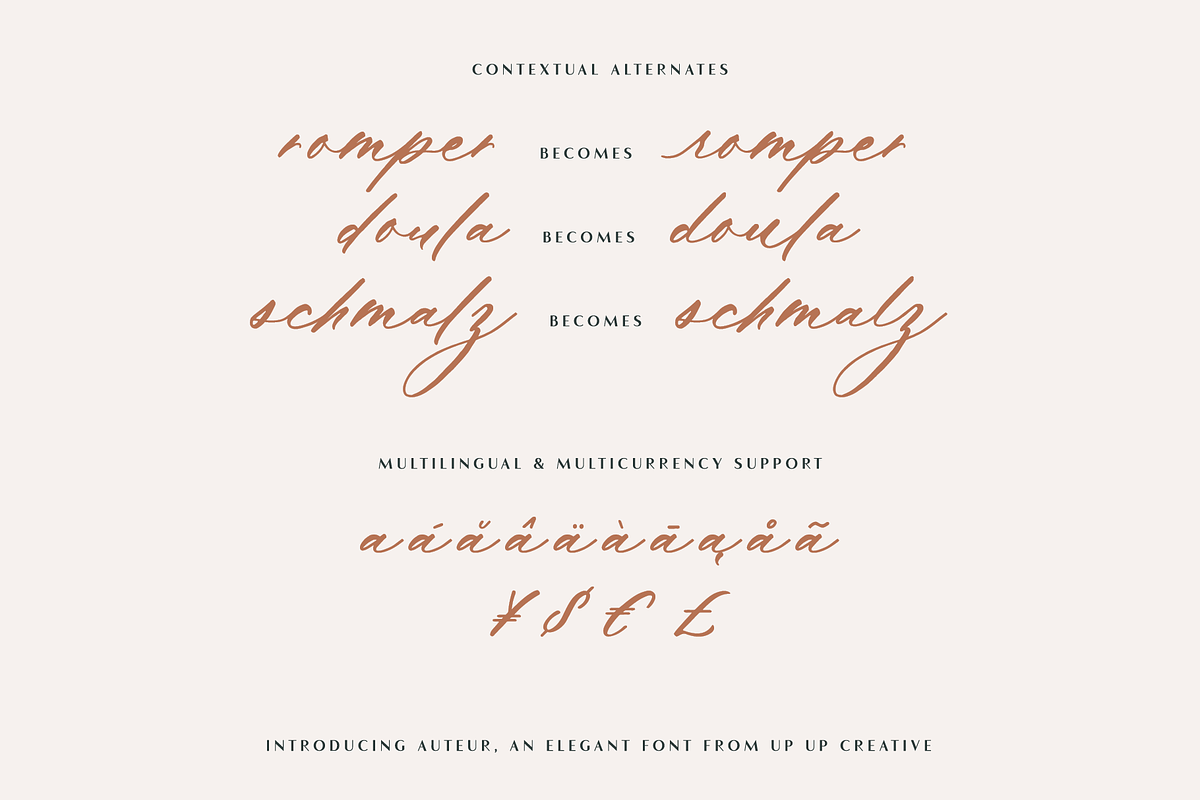 CONTEXTUAL ALTERNATES
romper BECOMES romper
doula BECOMES doula
schmalz BECOMES schmalz
MULTILINGUAL & MULTICURRENCY SUPPORT
aáăâäàāąåã
¥ $ € £
INTRODUCING AUTEUR, AN ELEGANT FONT FROM UP UP CREATIVE